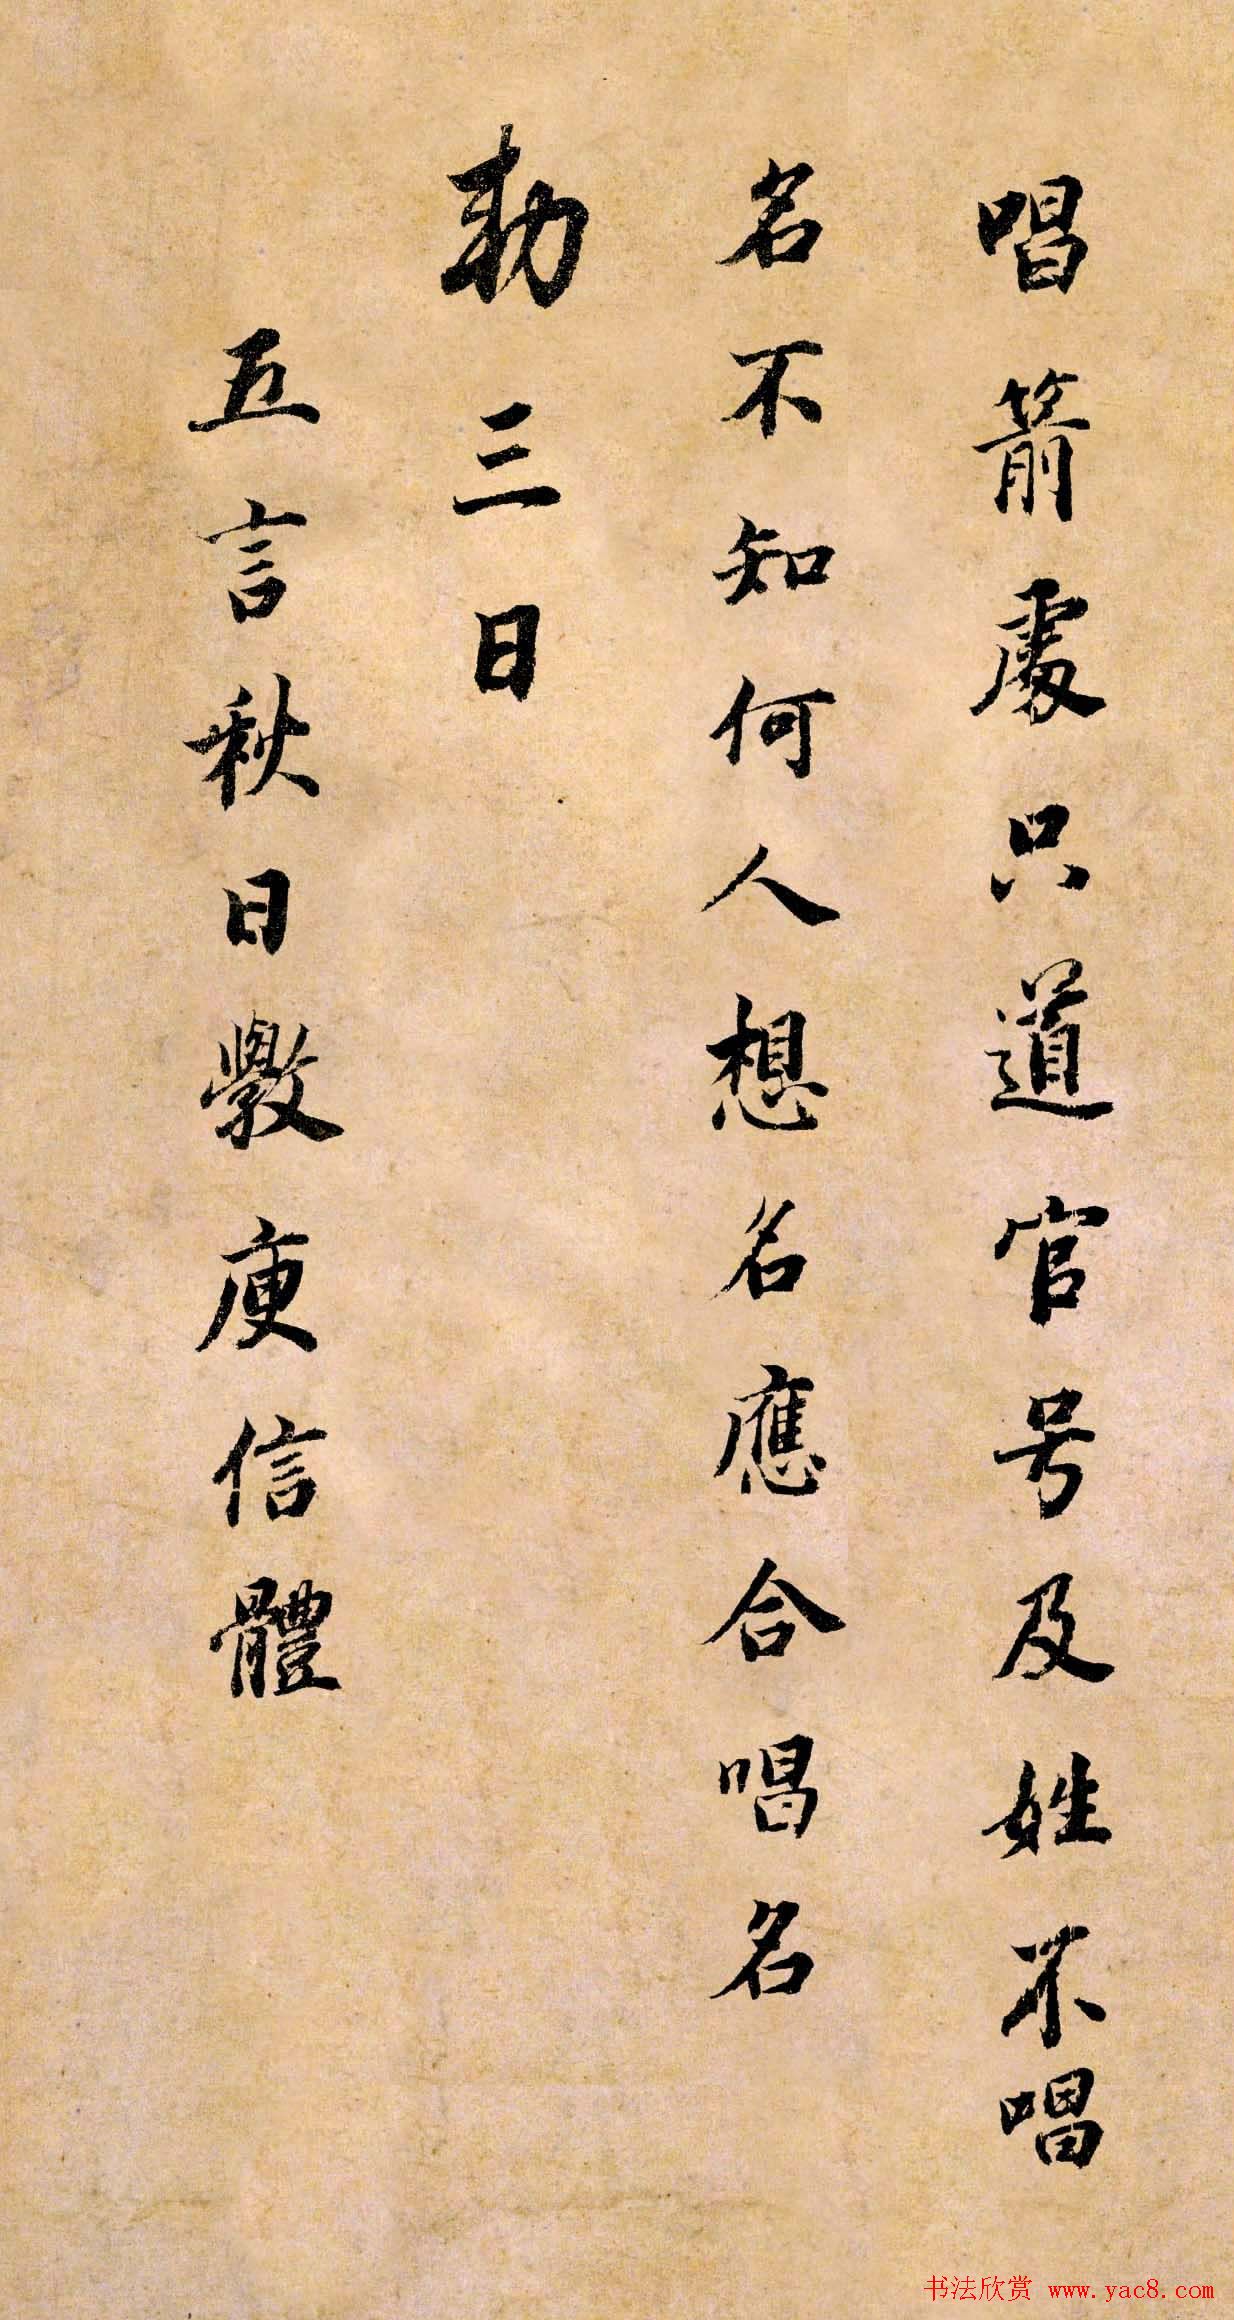 唱箭處只道官号及姓不唱
名不知何人想名應合唱名
勑三日
五言秋日斆庾信體
书法欣赏 www.yac8.com